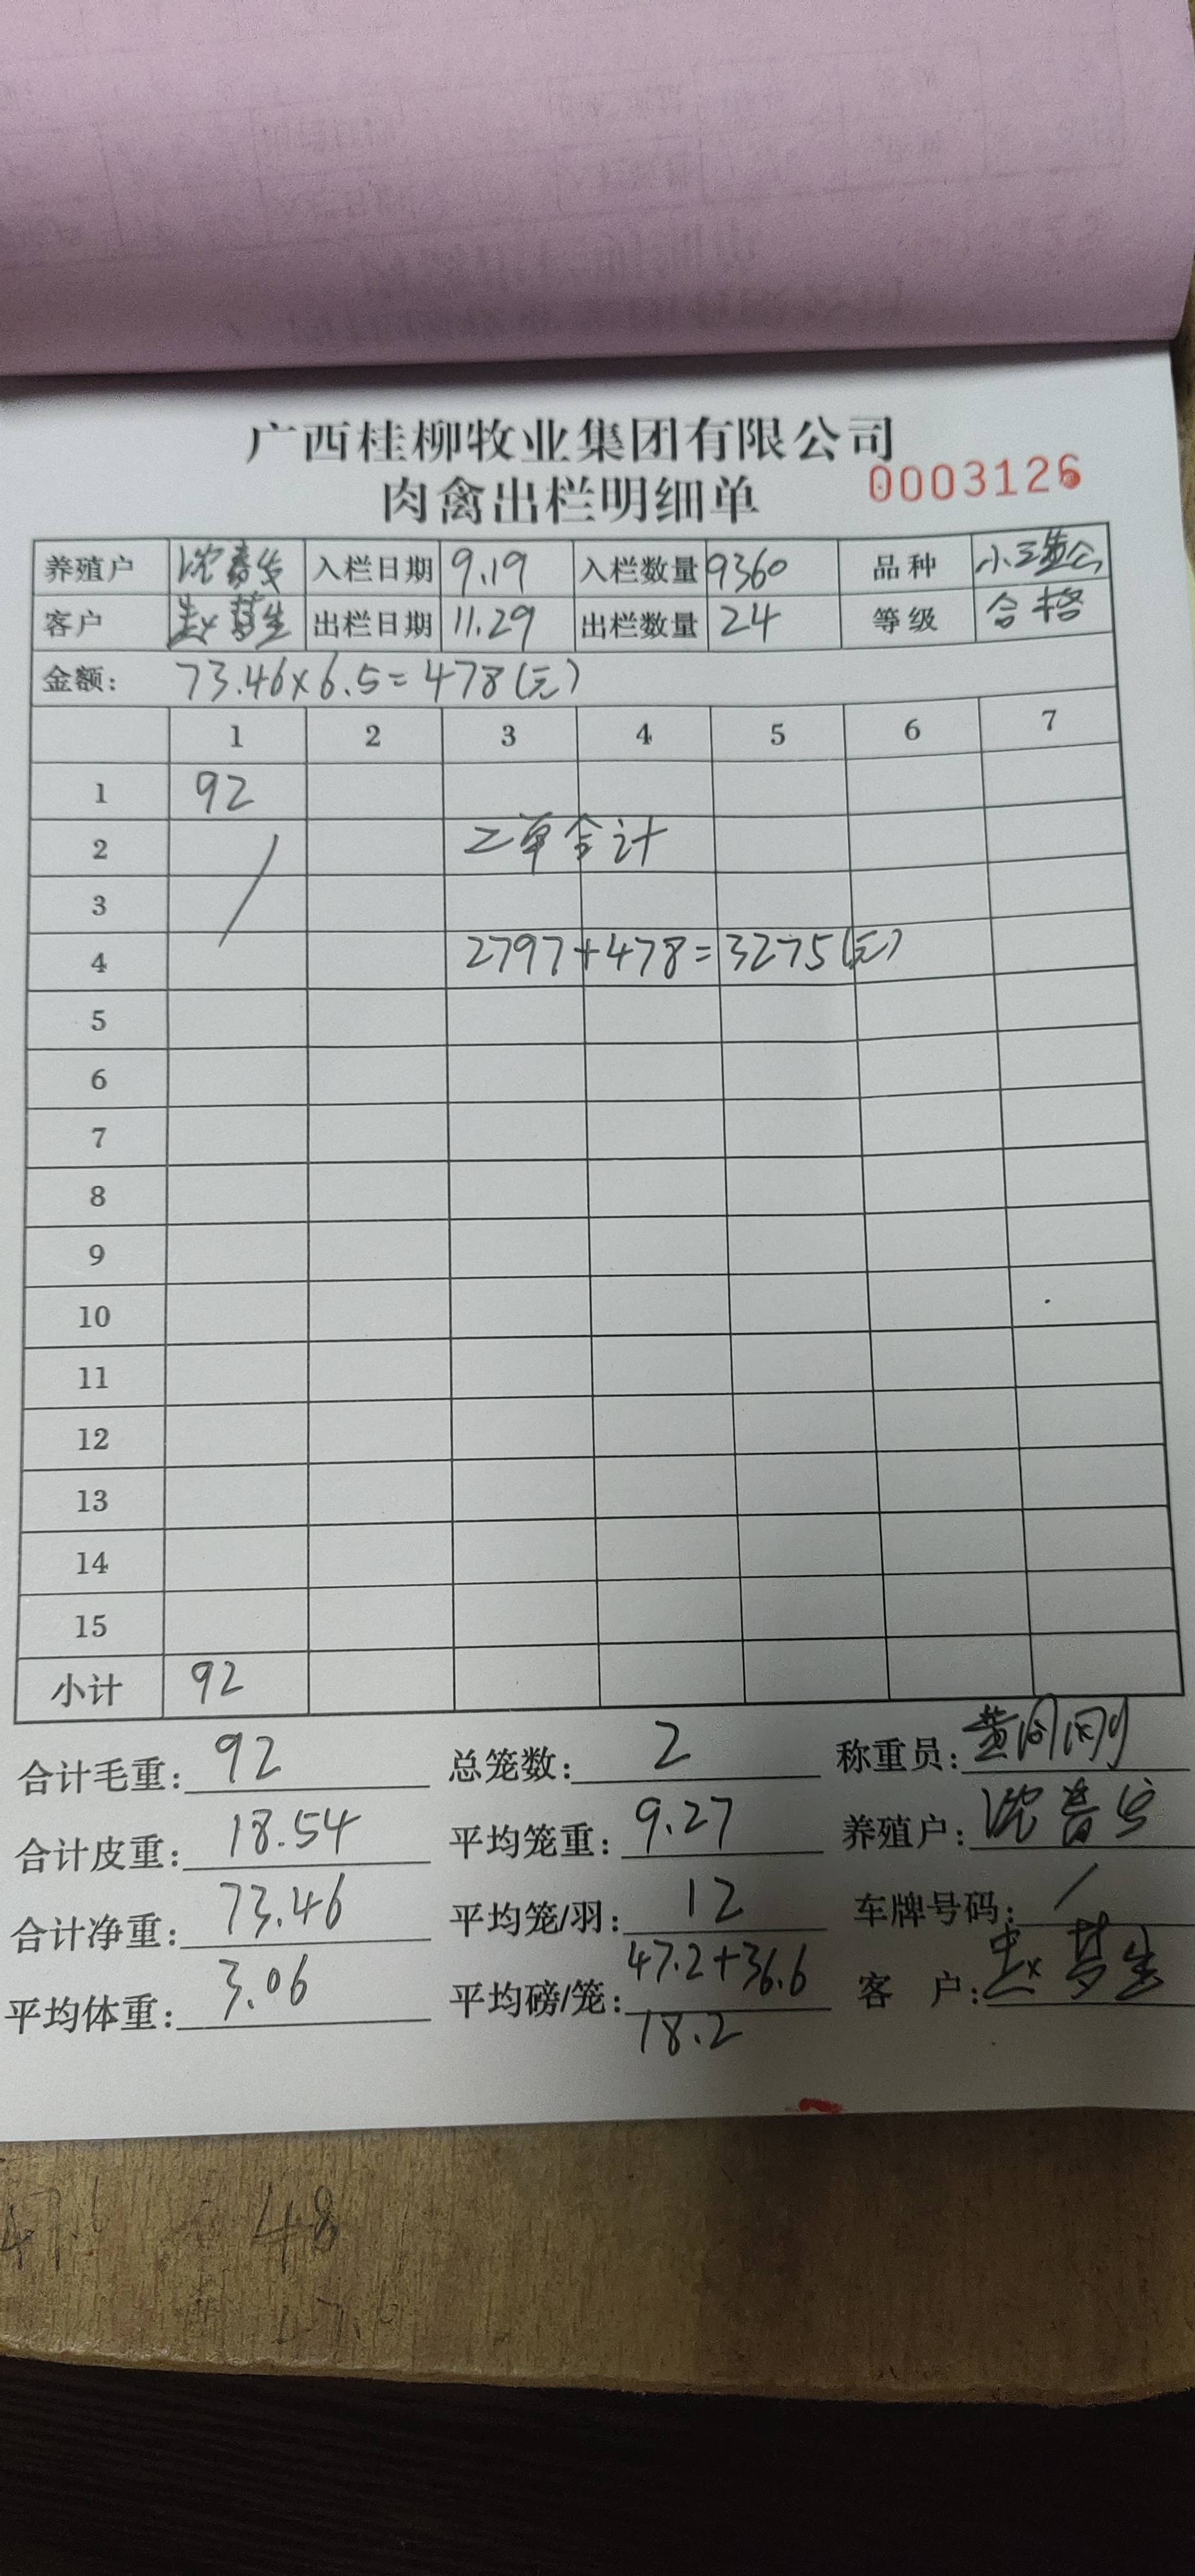 广西桂柳牧业集团有限公司
肉禽出栏明细单 0003126
养殖户 入栏日期 9.19 入栏数量 9360 品种 小三黄公
客户 出栏日期 11.29 出栏数量 24 等级 合格
金额: 73.46×6.5=478(元)
1 2 3 4 5 6 7
1 92
2 二单合计
3
4 2797+478=3275(元)
5
6
7
8
9
10
11
12
13
14
15
小计 92
合计毛重: 92 总笼数: 2 称重员:
合计皮重: 18.54 平均笼重: 9.27 养殖户:
合计净重: 73.46 平均笼/羽: 12 车牌号码: /
平均体重: 3.06 平均磅/笼: 47.2+36.6 客户:
18.2
48
47.6